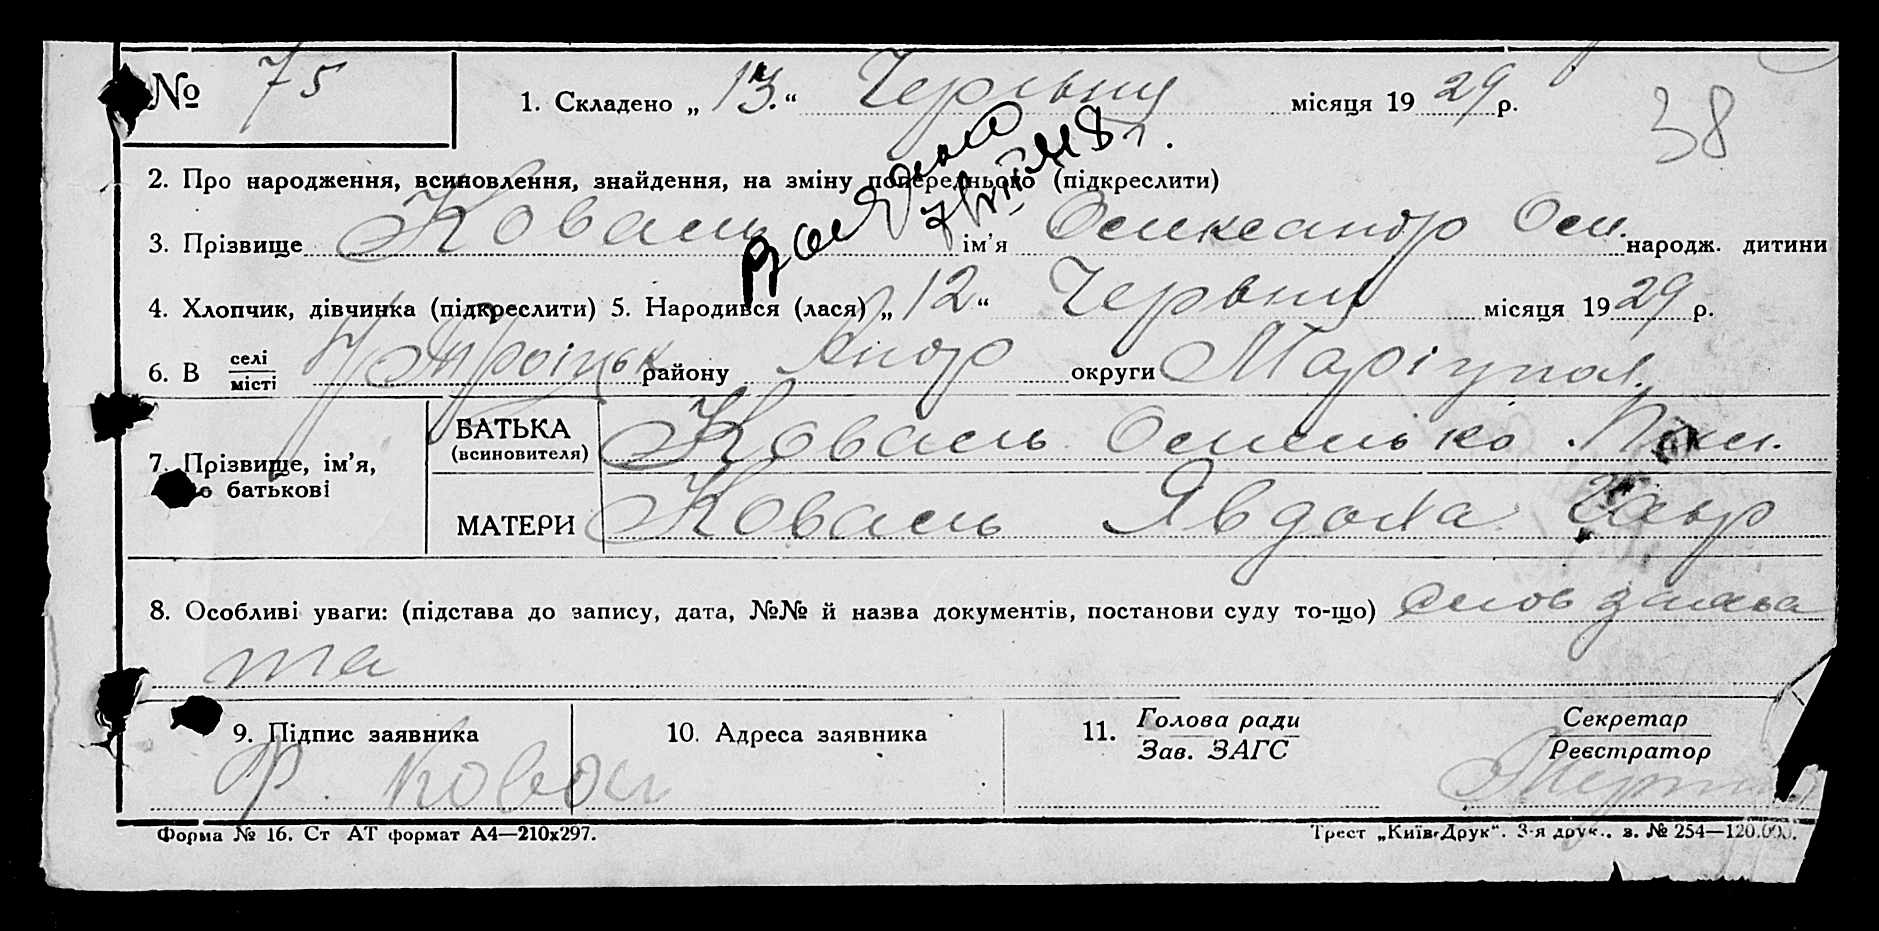 № 75
1. Складено „ 13. “ Червня місяця 19 29 р.
38
2. Про народження, всиновлення, знайдення, на зміну попереднього (підкреслити)
3. Прізвище Коваль ім’я Олександр Ом. народж. дитини
4. Хлопчик, дівчинка (підкреслити) 5. Народився (лася) „ 12 “ Червня місяця 19 29 р.
6. В селі
місті Троіцьк району Андр округи Маріупол.
7. Прізвище, ім’я,
по батькові
БАТЬКА
(всиновителя) Коваль Омелько
МАТЕРИ Коваль Явдоха Гавр
8. Особливі уваги: (підстава до запису, дата, №№ й назва документів, постанови суду то-що) слов заява
та
9. Підпис заявника
Коваль
10. Адреса заявника
11. Голова ради
Зав. ЗАГС
Секретар
Реєстратор
Форма № 16. Ст АТ формат А4—210х297.
Трест „Київ-Друк“. 3-я друк.. з. № 254—120.000.